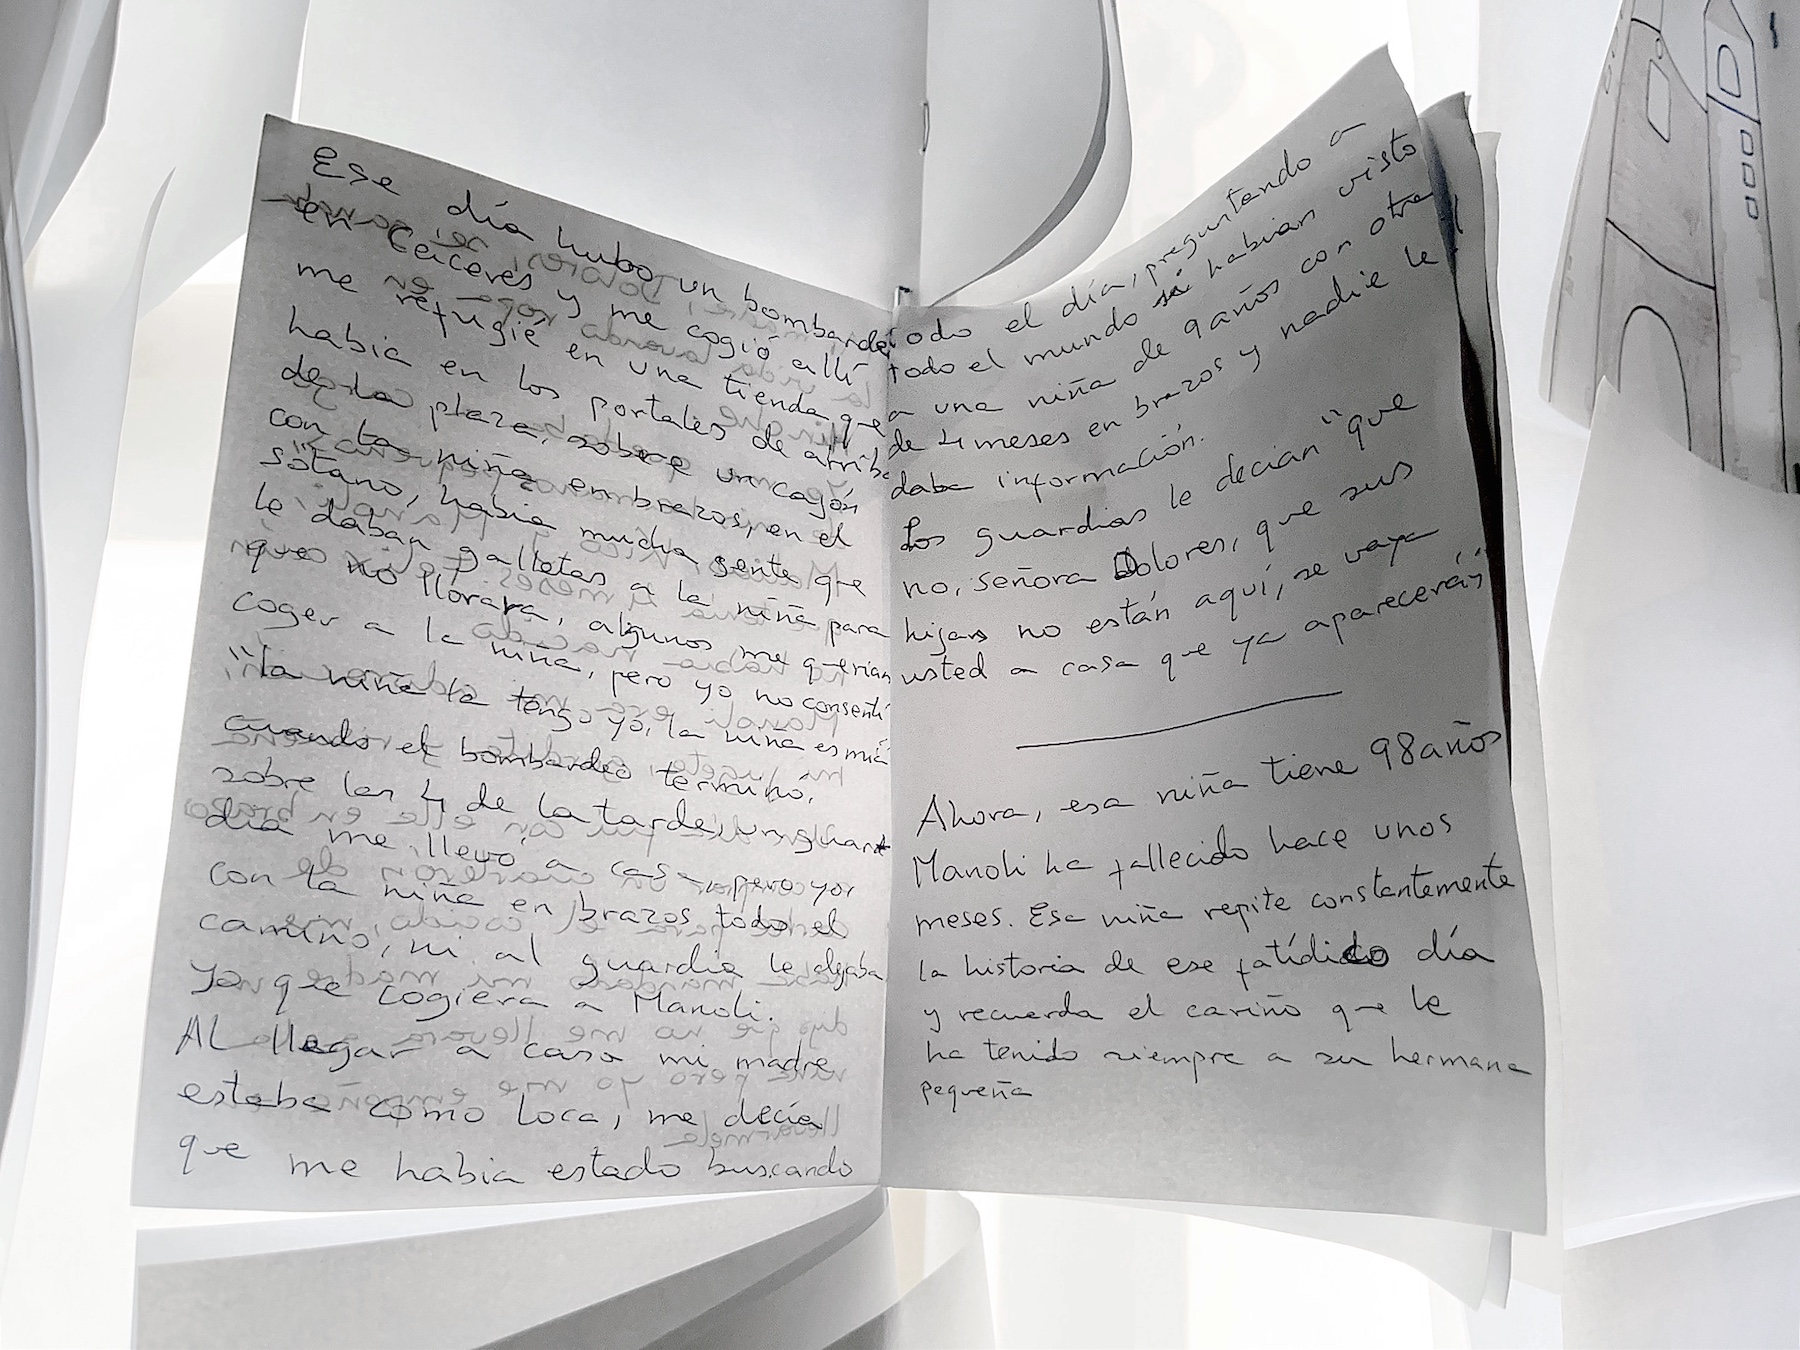 Ese día hubo un bombardeo
en Cáceres y me cogió allí
me refugié en una tienda que
habia en los portales de arriba
de la plaza, sobre un cagón
con la niña en brazos, en el
sótano, habia mucha gente que
le daban galletas a la niña para
que no llorara, algunos me querian
coger a la niña, pero yo no consentí
"la niña la tengo yo, la niña es mía
cuando el bombardeo terminó,
sobre las 4 de la tarde, un guar
dia me llevó a casa, pero yo,
con la niña en brazos todo el
camino, ni al guardia le dejaba
yo que cogiera a Manoli.
Al llegar a casa mi madre
estaba como loca, me decía
que me habia estado buscando
todo el día, preguntando a
todo el mundo si habian visto
a una niña de 9 años con otra
de 4 meses en brazos y nadie le
daba información.
Los guardias le decian "que
no, señora Dolores, que sus
hijas no están aquí, se vaya
usted a casa que ya aparecerán"
Ahora, esa niña tiene 98 años
Manoli ha fallecido hace unos
meses. Esa niña repite constantemente
la historia de ese fatídico día
y recuerda el cariño que le
ha tenido siempre a su hermana
pequeña